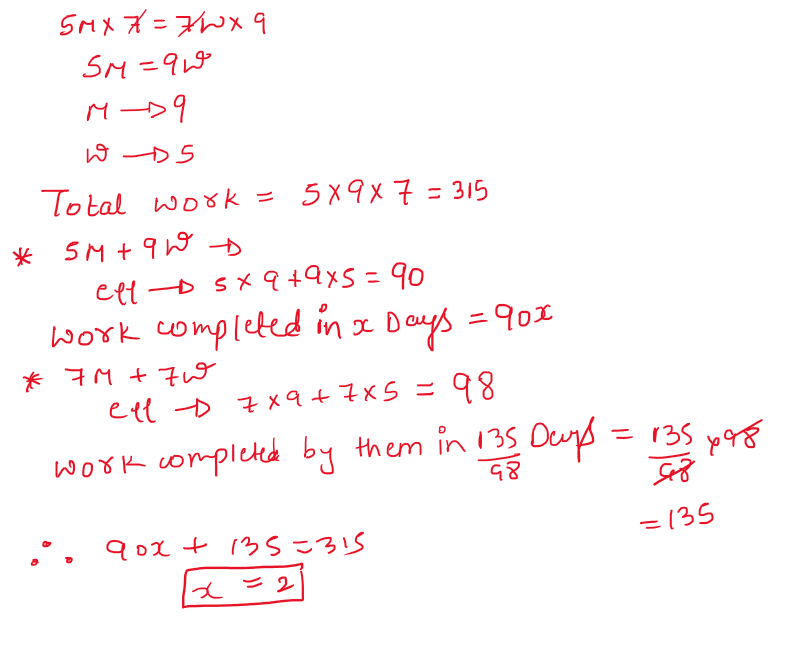 5M x 7 = 7W x 9
5M = 9W
M → 9
W → 5
Total work = 5 x 9 x 7 = 315
* 5M + 9W →
eff → 5 x 9 + 9 x 5 = 90
Work completed in x Days = 90x
* 7M + 7W
eff → 7 x 9 + 7 x 5 = 98
Work completed by them in 135/98 Days = 135/98 x 98
= 135
∴ 90x + 135 = 315
x = 2